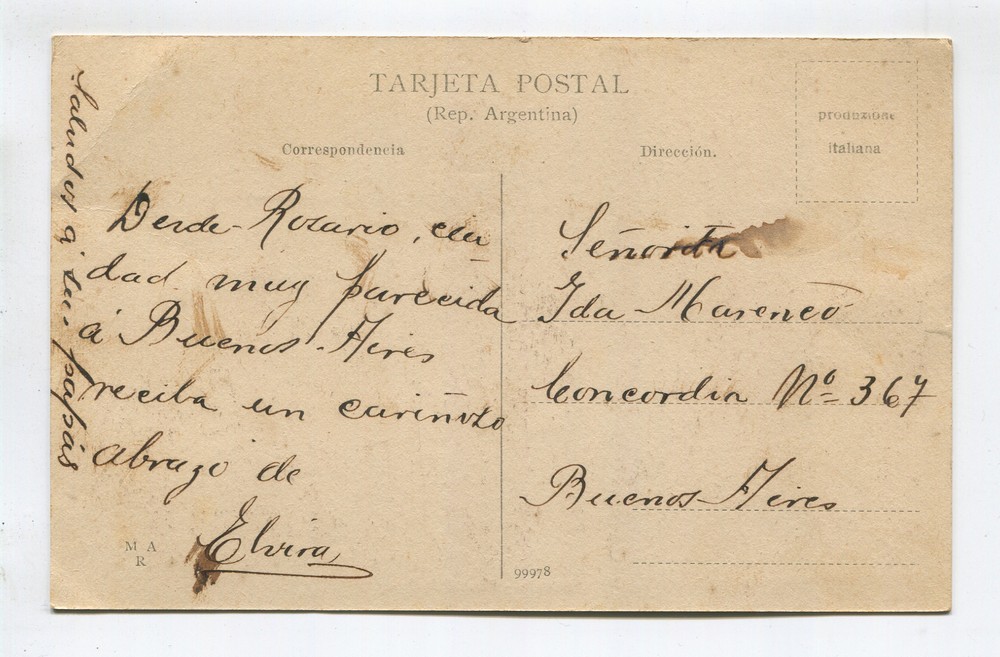 TARJETA POSTAL
(Rep. Argentina)
Correspondencia
Dirección.
produzione
italiana
Saludos á tus papás
Desde Rosario, ciu
dad muy parecida
á Buenos Aires
reciba un cariñozo
abrazo de
Elvira
M A
R
99978
Señorita
Ida Marencó
Concordia Nº 367
Buenos Aires